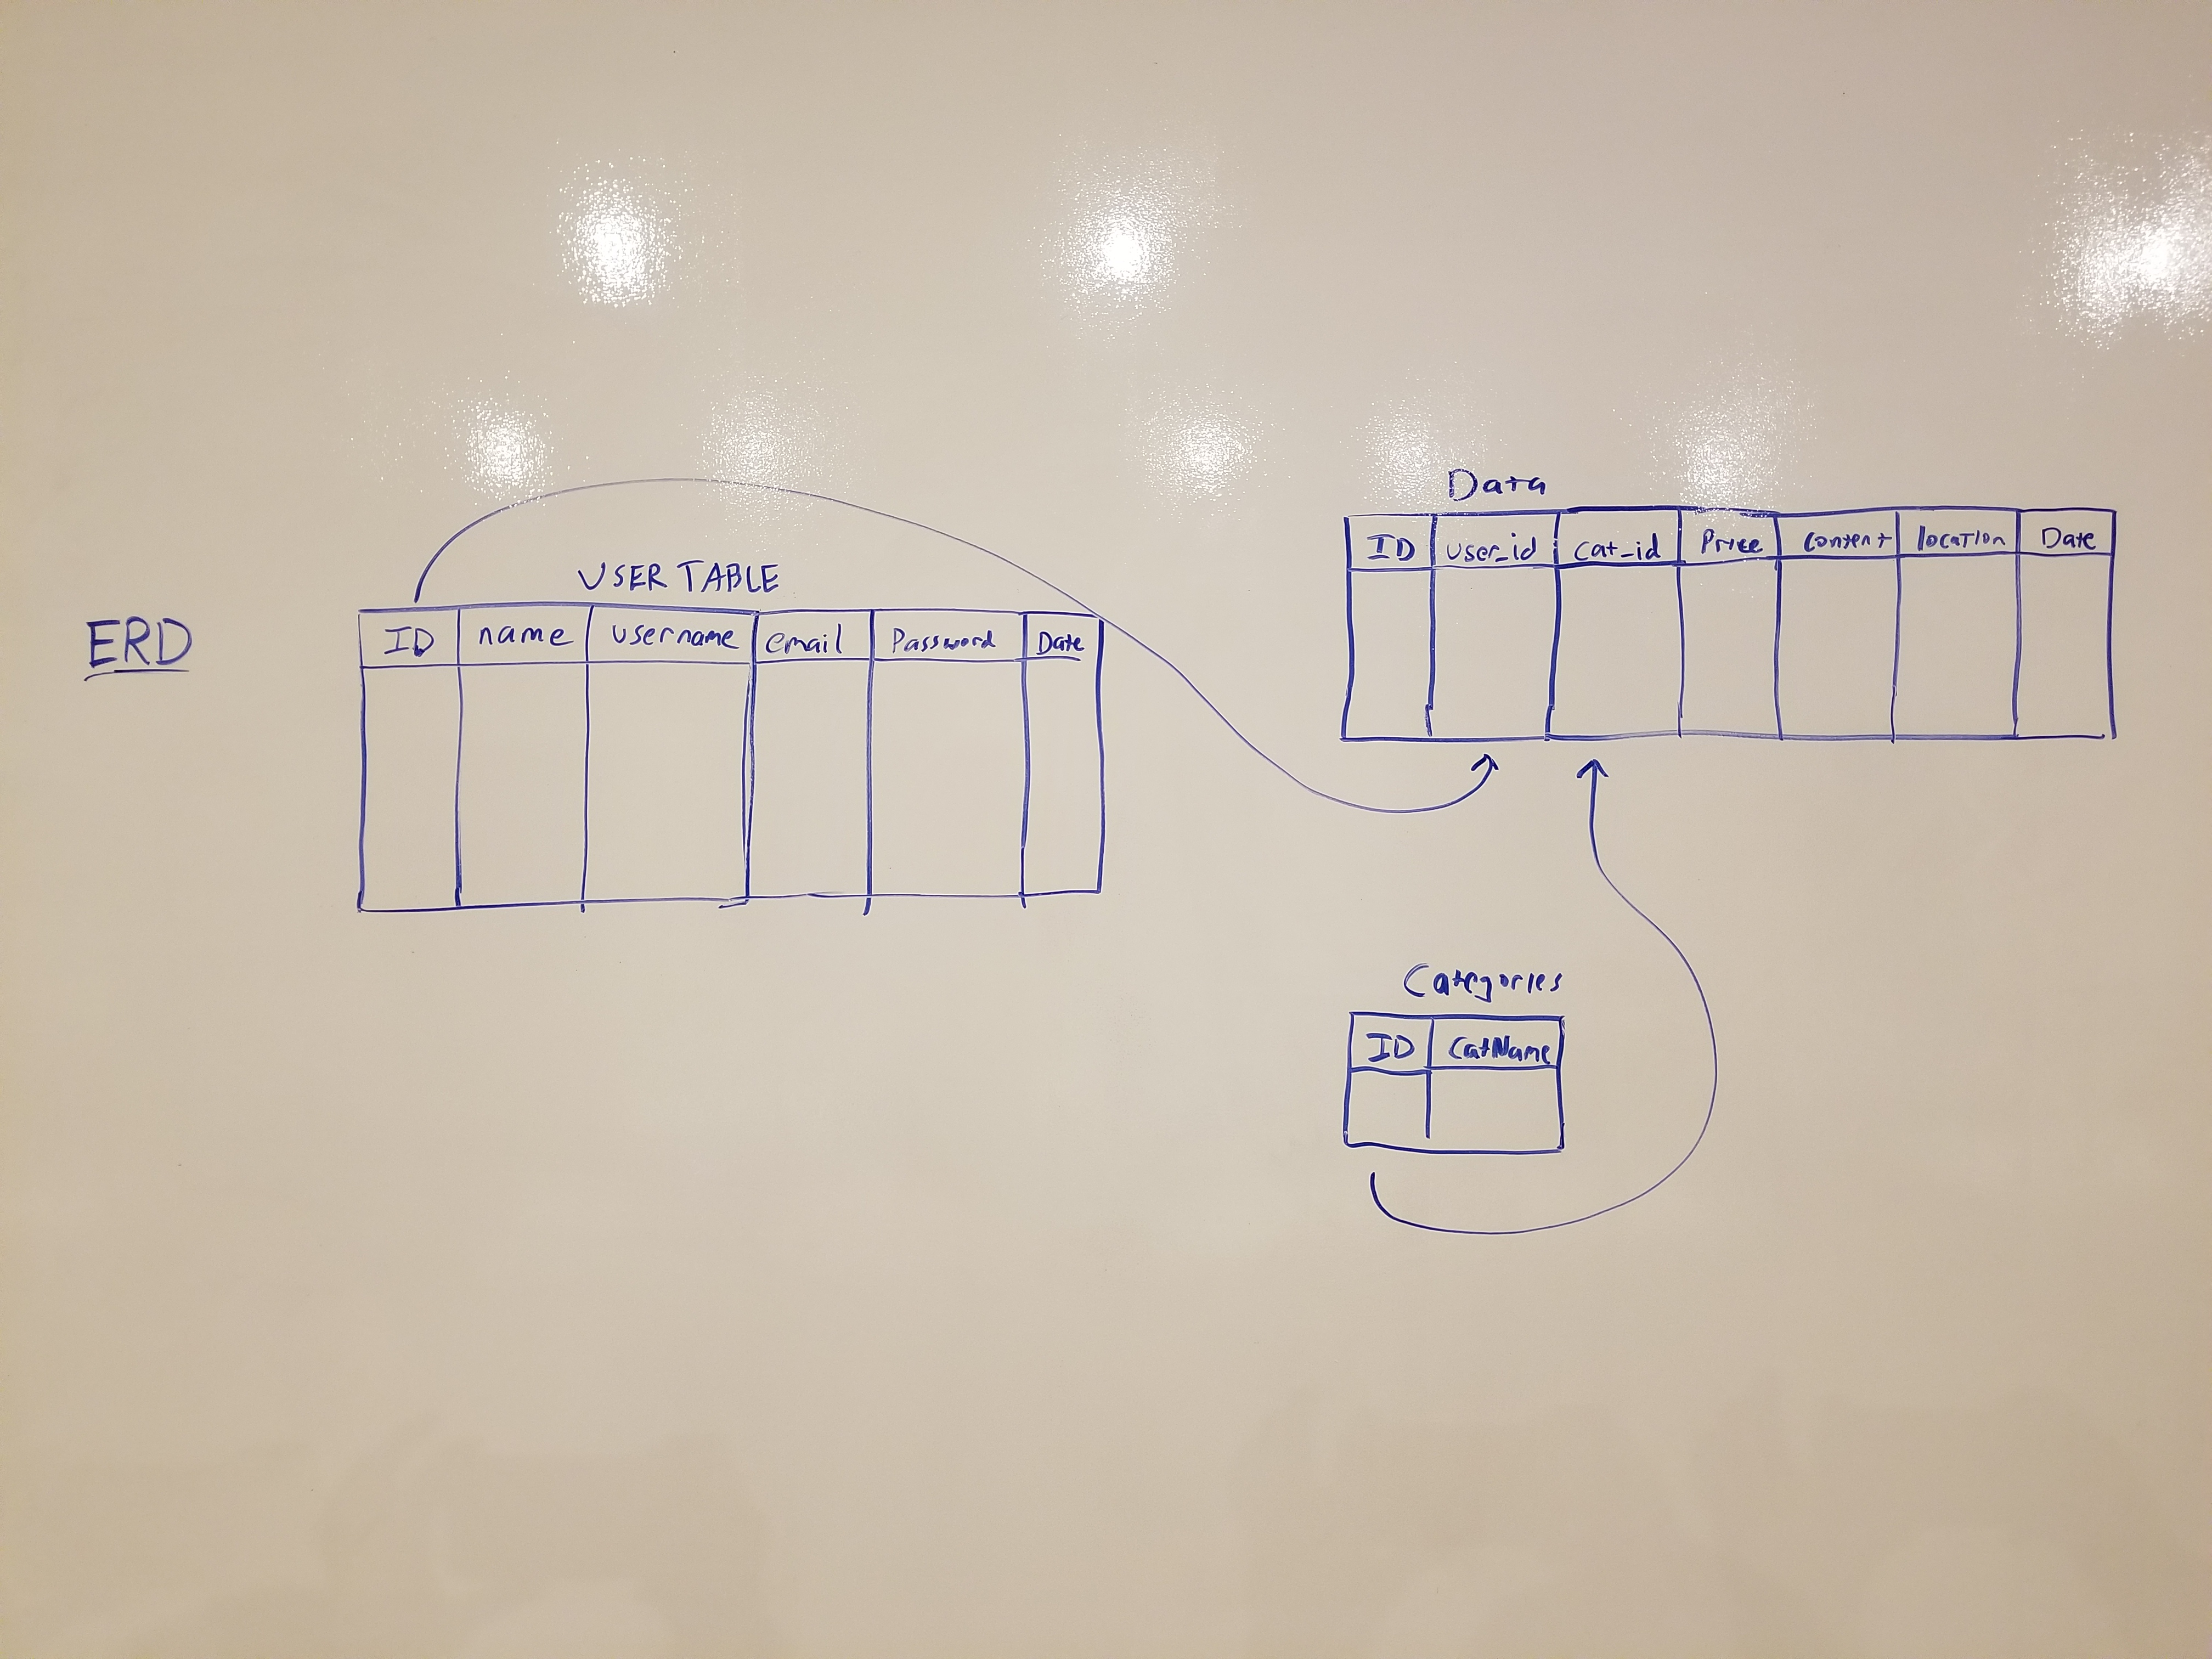 ERD
USER TABLE
ID name username email Password Date
Data
ID user_id cat_id Price Content location Date
Categories
ID CatName